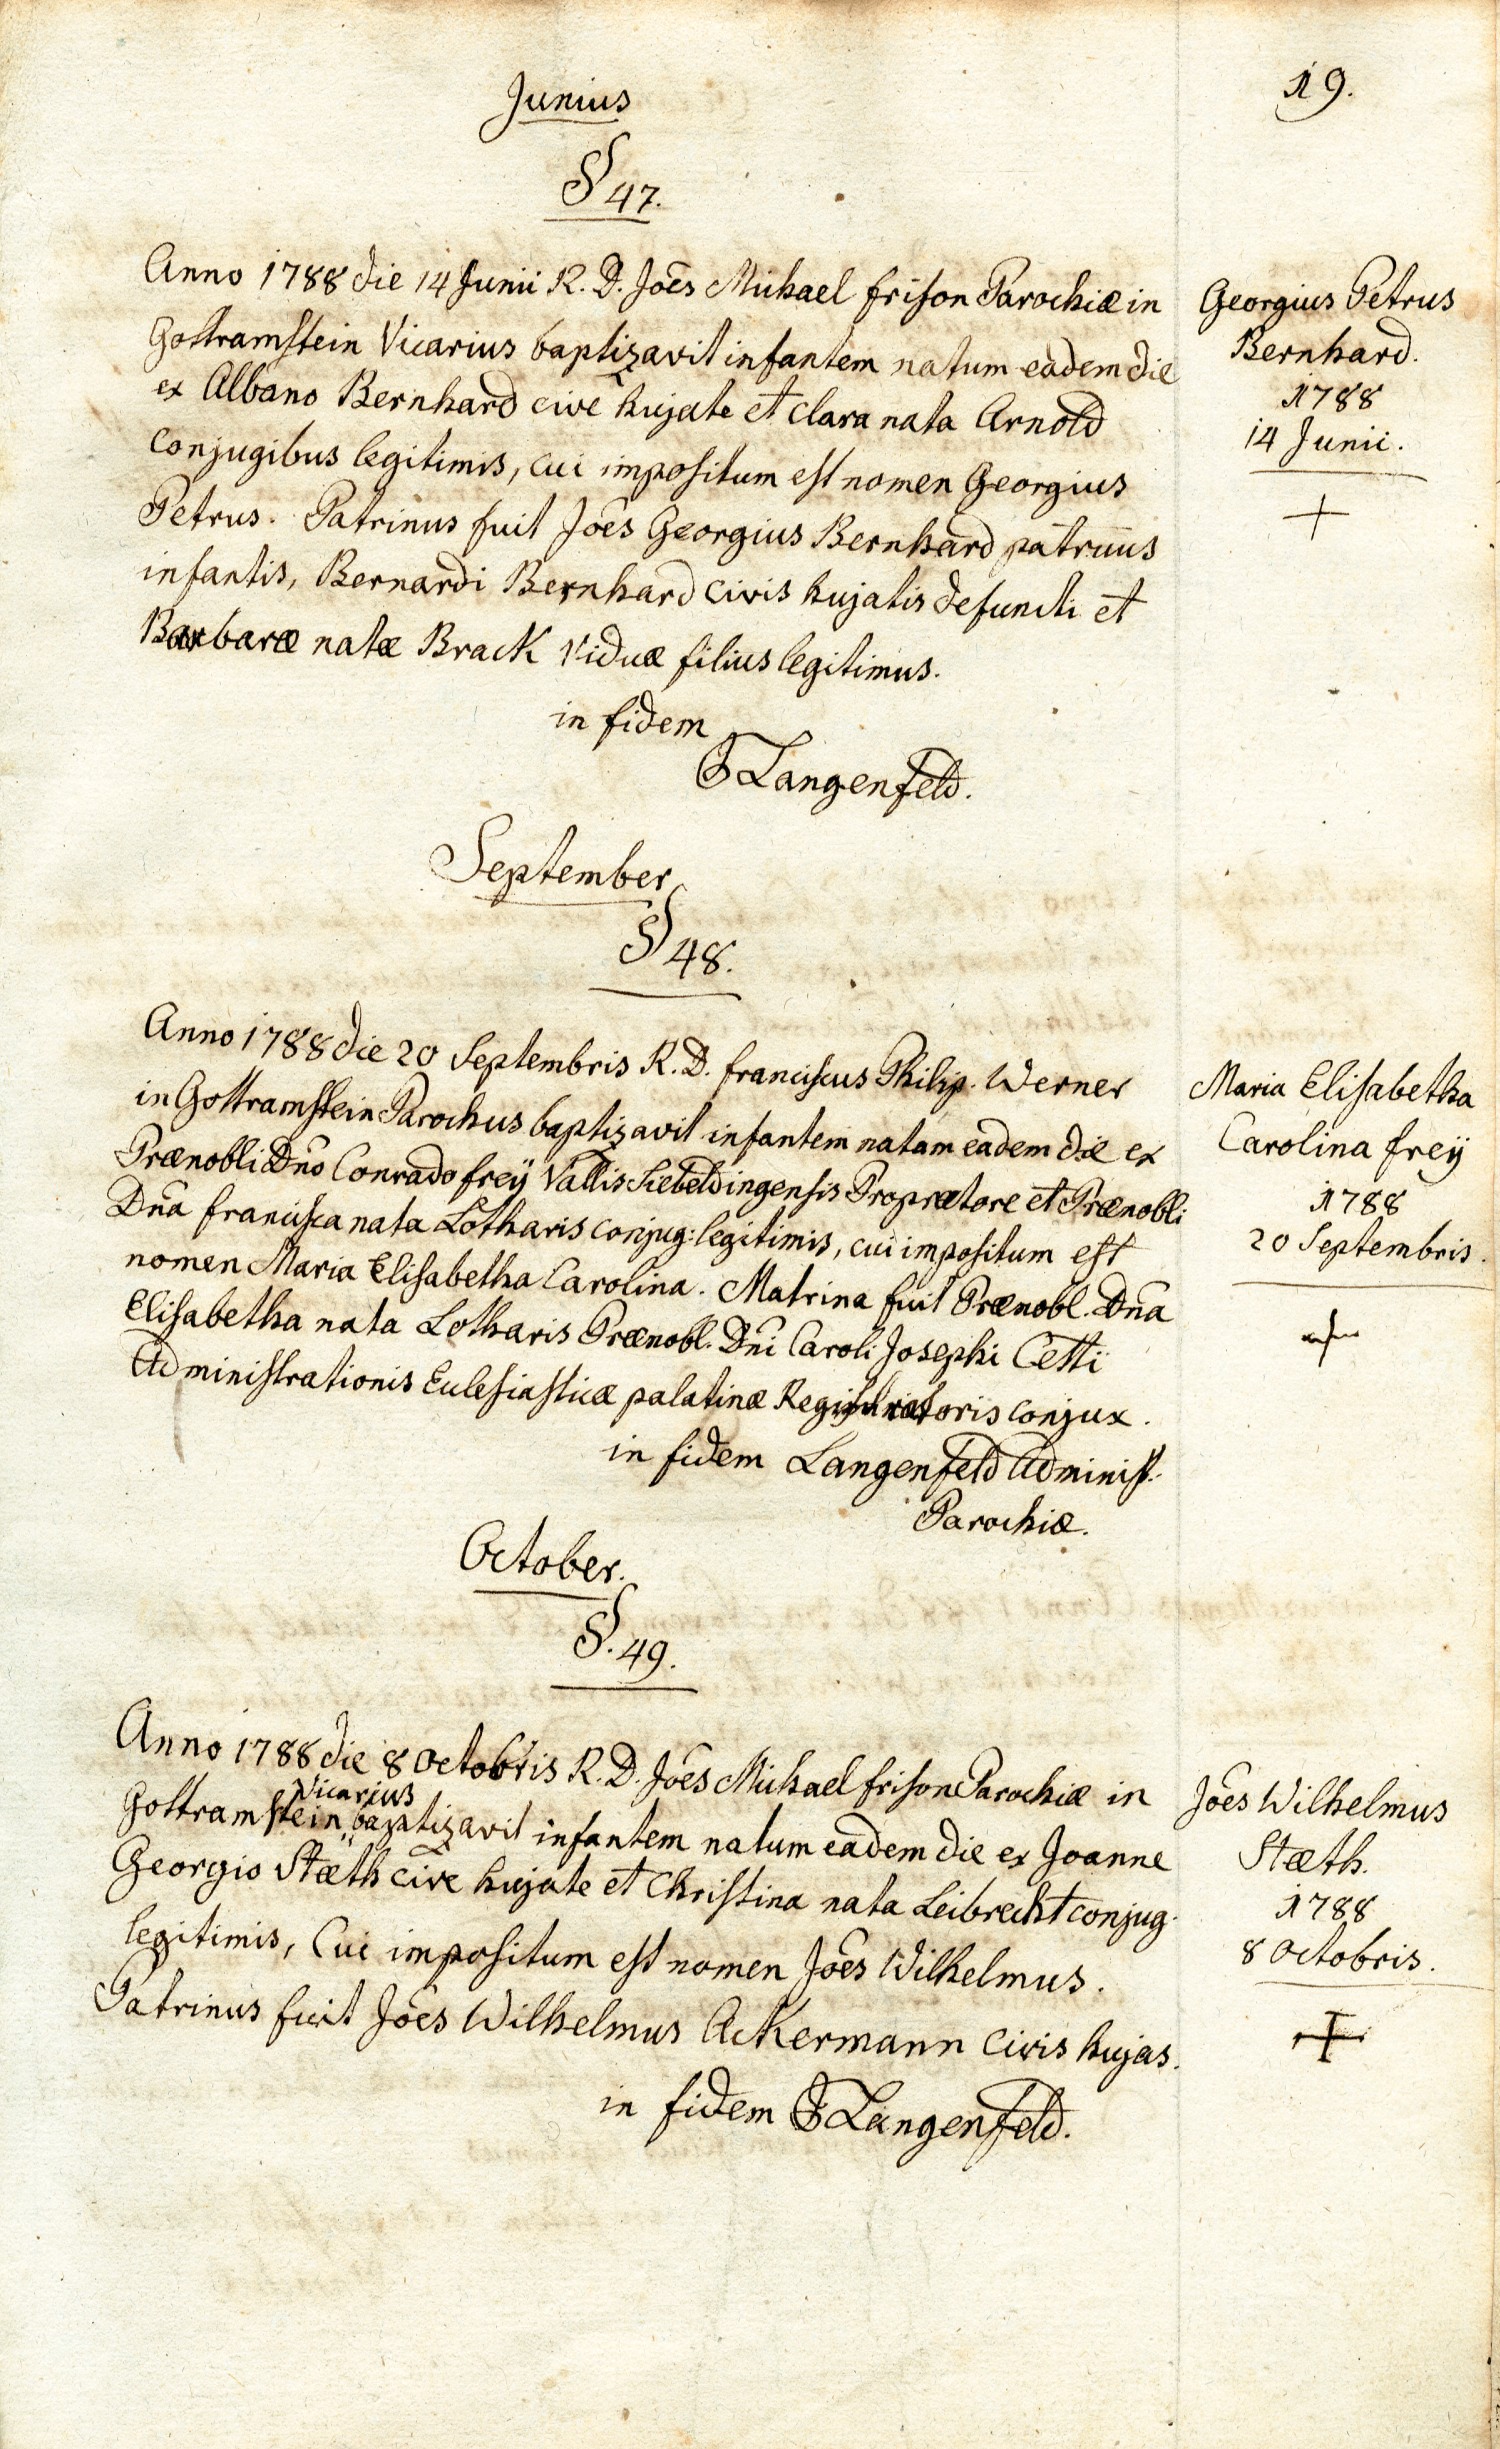 19.
Junius
§ 47.
Anno 1788 die 14 Junii R. D. Joēs Michael frison Parochiæ in
Gottramstein Vicarius baptizavit infantem natum eadem die
ex Albano Bernhard cive hujate et Clara nata Arnold
conjugibus legitimis, cui impositum est nomen Georgius
Petrus. Patrinus fuit Joēs Georgius Bernhard patruus
infantis, Bernardi Bernhard civis hujatis defuncti et
Barbaræ natæ Brack viduæ filius legitimus.
in fidem
Langenfeld.
Georgius Petrus
Bernhard.
1788
14 Junii.
September
§ 48.
Anno 1788 die 20 Septembris R. D. franciscus Philip. Werner
in Gottramstein Parochus baptizavit infantem natam eadem die ex
Prænobli Dn̄o Conrado freÿ Vallis Siebeldingensis Proprætore et Prænobli
Dn̄a francisca nata Lotharis conjug: legitimis, cui impositum est
nomen Maria Elisabetha Carolina. Matrina fuit Prænobl. Dn̄a
Elisabetha nata Lotharis Prænobl. Dn̄i Caroli Josephi Cetti
Administrationis Eclesiasticæ palatinæ Registratoris conjux.
in fidem Langenfeld Administ.
Parochiæ.
Maria Elisabetha
Carolina freÿ
1788
20 Septembris.
October.
§. 49.
Anno 1788 die 8 Octobris R. D. Joēs Michael frison Parochiæ in
Vicarius
Gottramstein baptizavit infantem natum eadem die ex Joanne
Georgio Stæth cive hujate et Christina nata Leibrecht conjug.
legitimis, Cui impositum est nomen Joēs Wilhelmus.
Patrinus fuit Joēs Wilhelmus Ackermann civis hujas.
in fidem Langenfeld.
Joēs Wilhelmus
Stæth.
1788
8 Octobris.